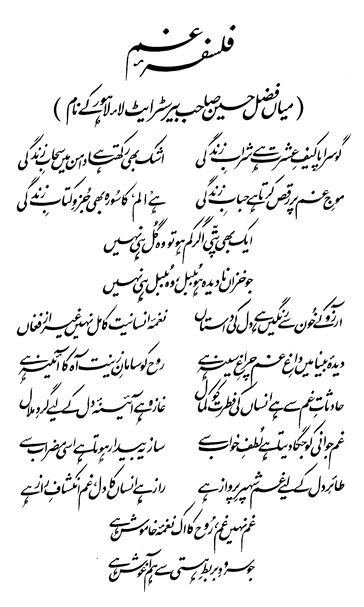 فلسفۂ غم
( میاں فضل حسین صاحب بیرسٹر ایٹ لاء لاہور کے نام )
گو سراپا کیفِ عشرت ہے شرابِ زندگی اشک بھی رکھتا ہے دامن میں سحابِ زندگی
موجِ غم پر رقص کرتا ہے حبابِ زندگی ہے الم کا سورہ بھی جزوِ کتابِ زندگی
ایک بھی پتّی اگر کم ہو تو وہ گل ہی نہیں
جو خزاں نادیدہ ہو بلبل، وہ بلبل ہی نہیں
آرزو کے خون سے رنگیں ہے دل کی داستاں نغمۂ انسانیت کامل نہیں غیر از فغاں
دیدۂ بینا میں داغِ غم چراغِ سینہ ہے روح کو سامانِ زینت آہ کا آئینہ ہے
حادثاتِ غم سے ہے انساں کی فطرت کو کمال غازہ ہے آئینۂ دل کے لیے گردِ ملال
غم جوانی کو جگا دیتا ہے لطفِ خواب سے ساز یہ بیدار ہوتا ہے اسی مضراب سے
طائرِ دل کے لیے غم شہپرِ پرواز ہے راز ہے انساں کا دل، غم انکشافِ راز ہے
غم نہیں غم، روح کا اک نغمۂ خاموش ہے
جو سرودِ بربطِ ہستی سے ہم آغوش ہے